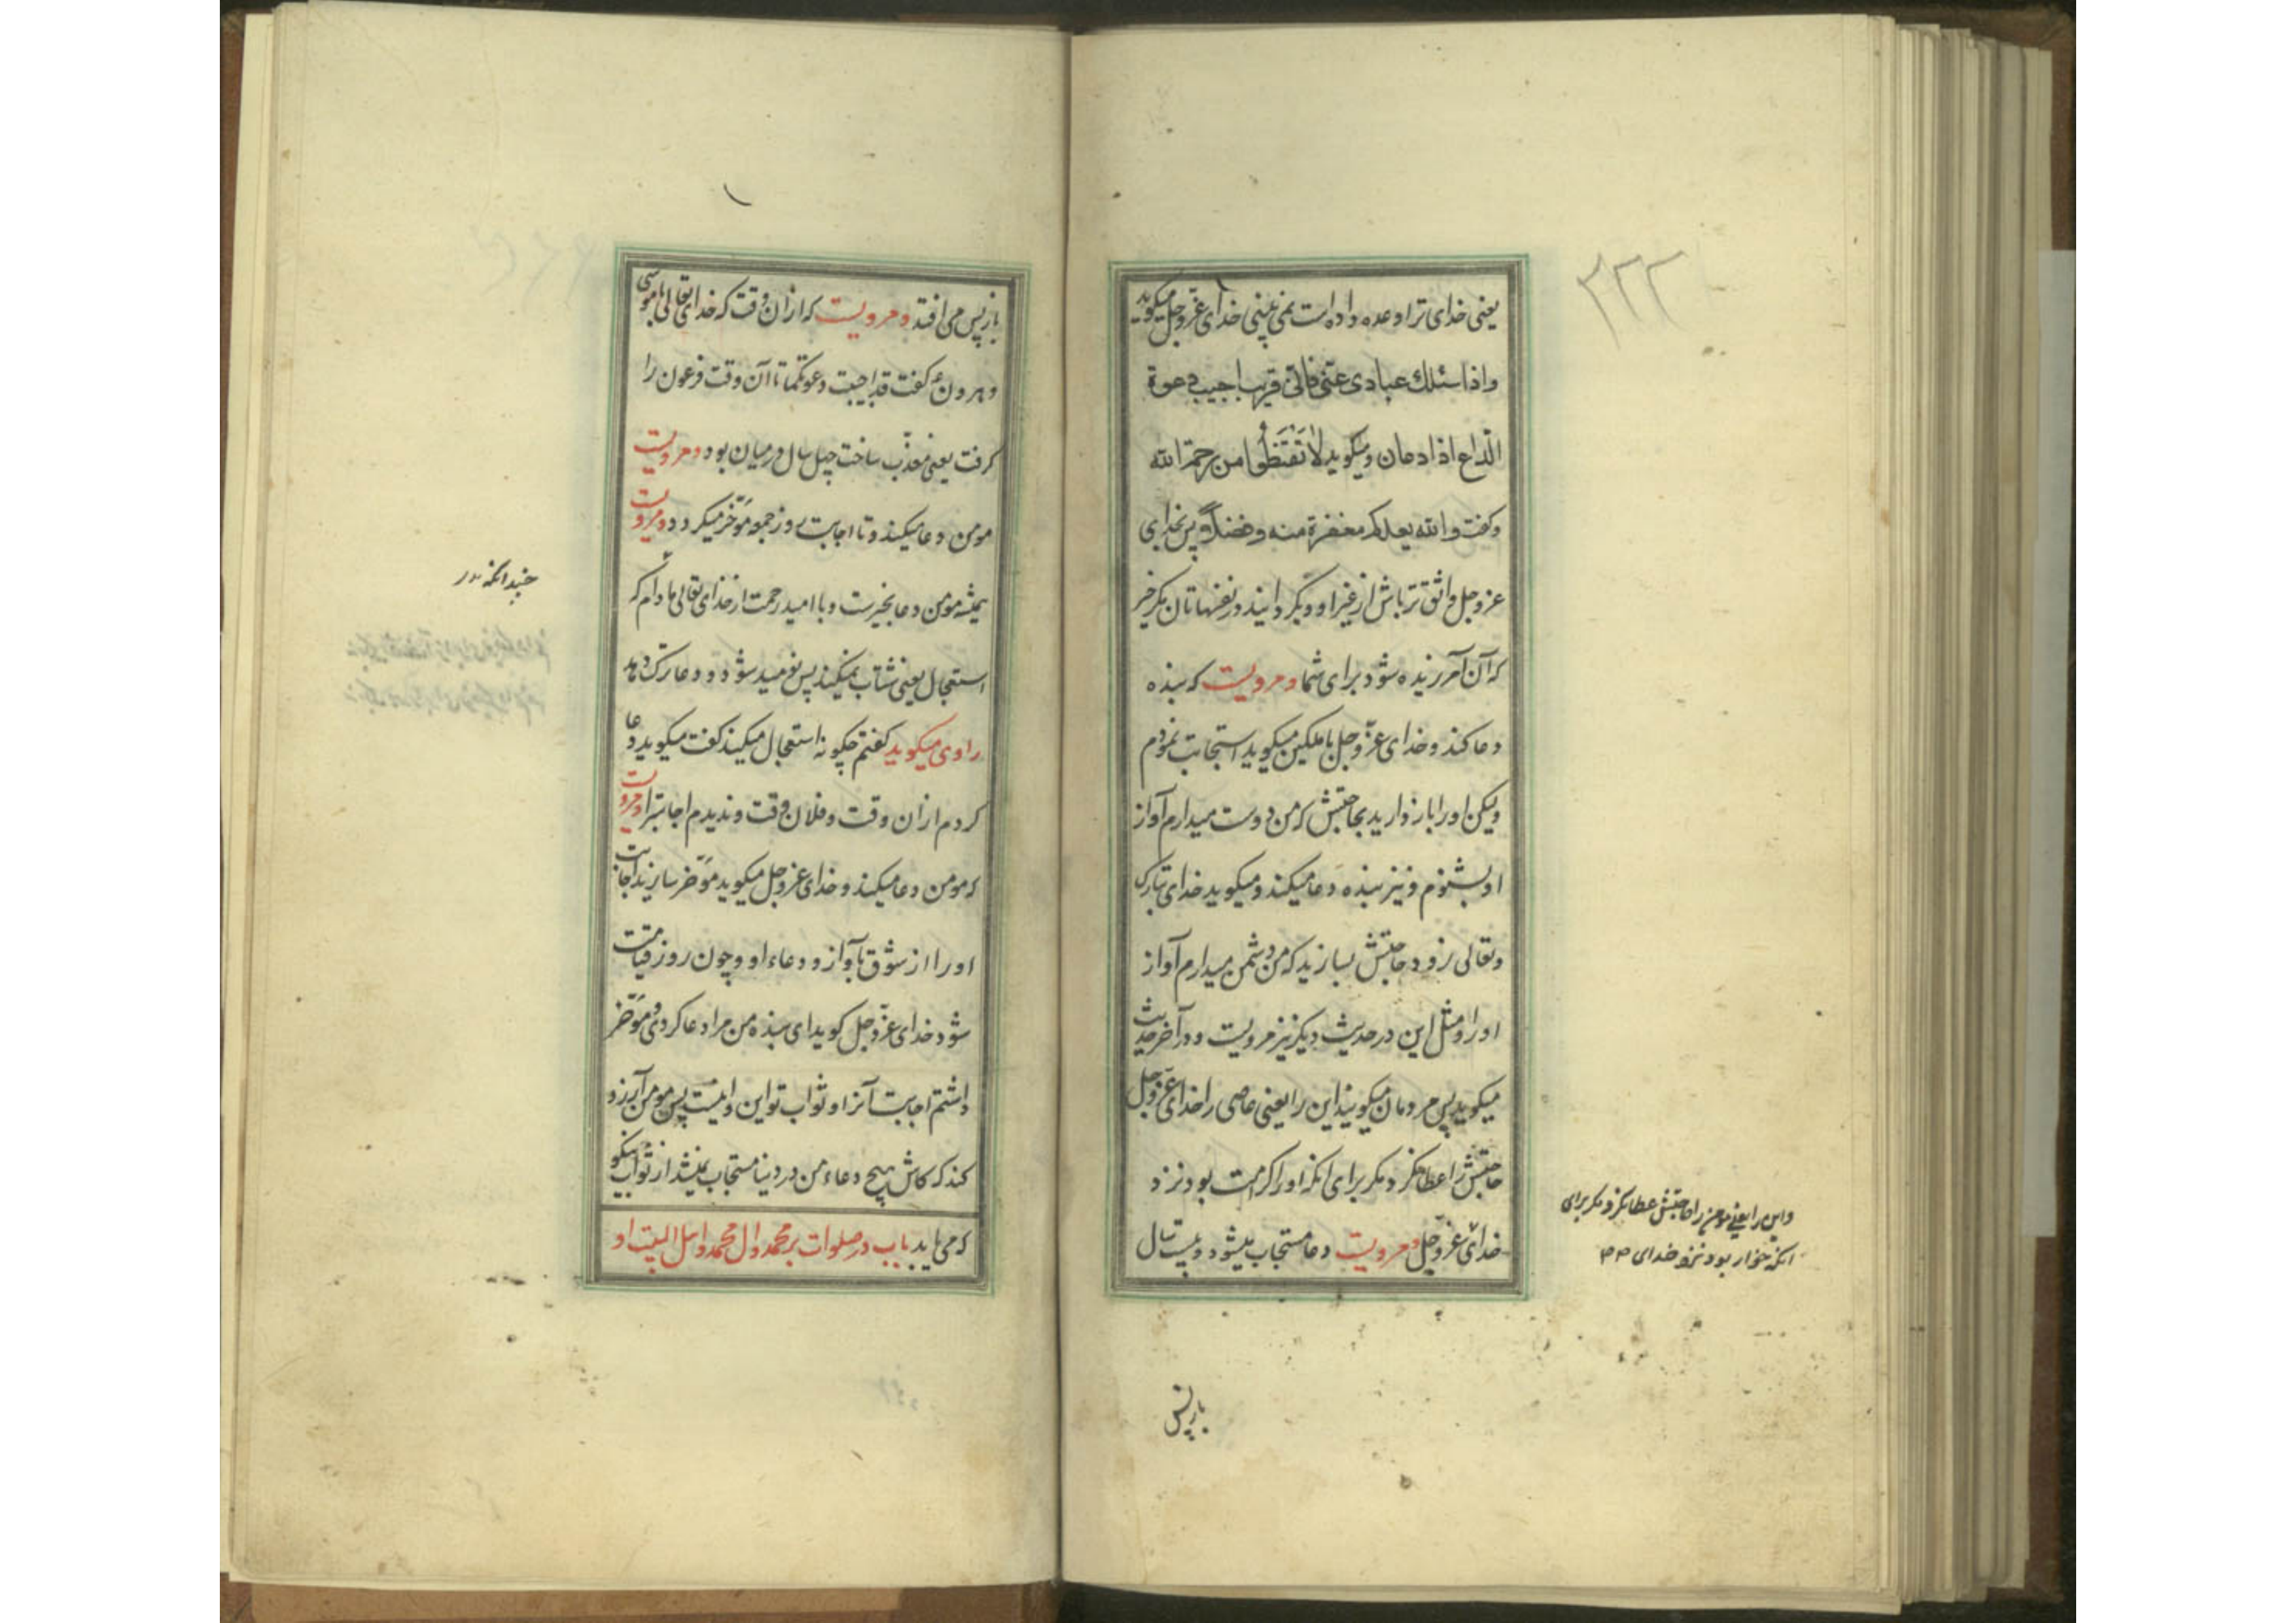 ۲۲۲
یعنی خدای ترا وعده داده است نمی بینی خدای عزّ وجل میکوید
واذا سئلك عبادی عنّی فانّی قریب اجیب دعوة
الدّاع اذا دعان ومیکوید لا تَقنَطُوا من رحمة الله
وکفت والله یعدکم مغفرة منه وفضلاً وپس بخدای
عز وجل واثق تر باش از غیر او ودیکر دانید در نفسهاتان مکر خیر
که آن آمرزیده شود برای شما ومرویست که بنده
دعا کند وخدای عزّ وجل با ملکین میکوید استجابت نمودم
ولیکن اورا باز دارید بحاجتش که من دوست میدارم آواز
او بشنوم ونیز بنده دعا میکند ومیکوید خدای تبارک
وتعالی زود حاجتش بسازید که من دشمن میدارم آواز
اورا ومثل این در حدیث دیکر نیز مرویست ودر آخر حدیث
میکوید پس مردمان میکویند این را یعنی عاصی را خدای عزّ وجل
حاجتش را عطا نکرد مکر برای انکه اورا کرامت بود نزد
خدای عزّ وجل ومرویست دعا مستجاب میشود وبیست سال
واین را یعنی مؤمن را حاجتش عطا نکرد مکر برای
انکه خوار بود نزد خدای
باز پس
باز پس می افتد ومرویست که از ان وقت که خدای تعالی با موسی
وهرون کفت قد اجیبت دعوتکما تا آن وقت فرعون را
کرفت یعنی معذّب ساخت چهل سال در میان بود ومرویست
مومن دعا میکند وتا اجابت روز جمعه مؤخّر میکردد ومرویست
همیشه مومن دعا بخیرست وبا امید رحمت از خدای تعالی مادام که
استعجال یعنی شتاب نمیکند پس نومید شود ودعا ترک دهد
راوی میکوید کفتم چکونه استعجال میکند کفت میکوید دعا
کردم از ان وقت وفلان وقت وندیدم اجابترا ومرویست
که مومن دعا میکند وخدای عز وجل میکوید مؤخر سازید اجابت
اورا از شوق بآواز ودعاء او وچون روز قیامت
شود خدای عزّ وجل کوید ای بنده من مرا دعا کردی ومؤخر
داشتم اجابت آنرا وثواب تو این واینست پس مومن آرزو
کند که کاش هیچ دعاء من در دنیا مستجاب نمیشد از ثواب نیکو
که می یابد باب در صلوات بر محمد وال محمد واهل البیت او
چندانکه در